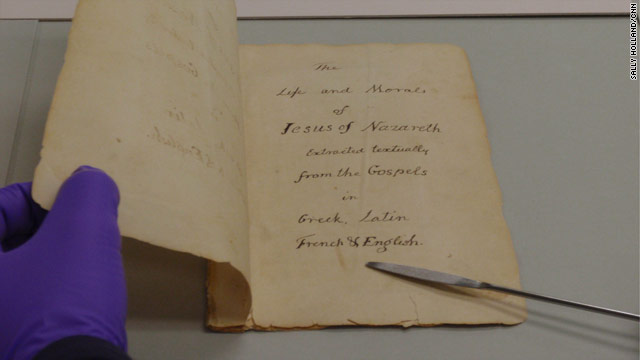 The
Life and Morals
of
Jesus of Nazareth
Extracted textually
from the Gospels
in
Greek, Latin
French & English.
SALLY HOLLAND/CNN